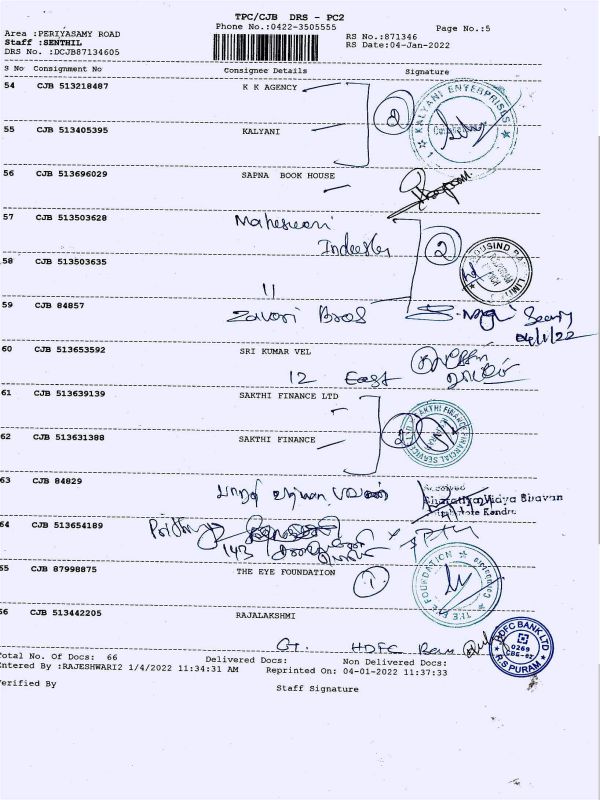 TPC/CJB DRS - PC2
Area :PERIYASAMY ROAD Phone No.:0422-3505555 Page No.:5
Staff :SENTHIL RS No.:871346
DRS No. :DCJB87134605 RS Date:04-Jan-2022
S No Consignment No Consignee Details Signature
54 CJB 513218487 K K AGENCY
2 KALYANI ENTERPRISES
55 CJB 513405395 KALYANI
56 CJB 513696029 SAPNA BOOK HOUSE
57 CJB 513503628 Maheswari
2
58 CJB 513503635
11
59 CJB 84857 Zavori Bros
04/1/22
60 CJB 513653592 SRI KUMAR VEL
12 East
61 CJB 513639139 SAKTHI FINANCE LTD
2 SAKTHI FINANCIAL SERVICES LTD
62 CJB 513631388 SAKTHI FINANCE
63 CJB 84829
Bharatiya Vidya Bhavan
64 CJB 513654189
143
65 CJB 87998875 THE EYE FOUNDATION 1 THE EYE FOUNDATION
66 CJB 513442205 RAJALAKSHMI
GT. HDFC Bank HDFC BANK LTD
0269
R S PURAM
Total No. Of Docs: 66 Delivered Docs: Non Delivered Docs:
Entered By :RAJESHWARI2 1/4/2022 11:34:31 AM Reprinted On: 04-01-2022 11:37:33
Verified By Staff Signature